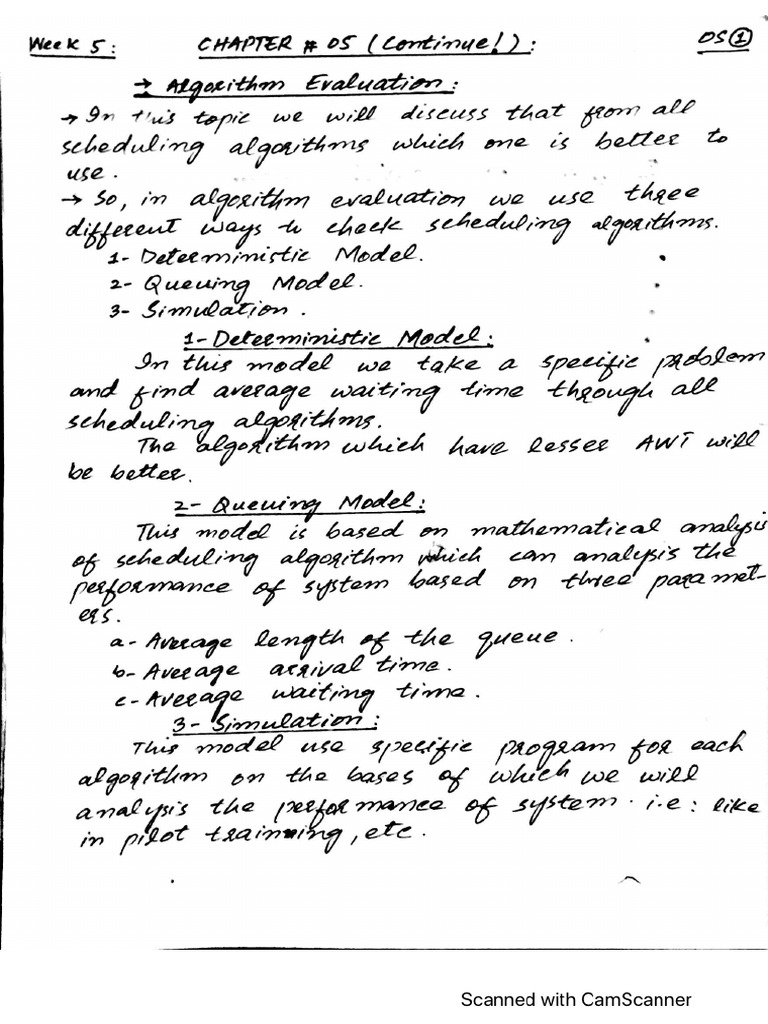 Week 5:
CHAPTER # 05 (Continue!):
OS ①
→ Algorithm Evaluation:
→ In this topic we will discuss that from all
scheduling algorithms which one is better to
use.
→ So, in algorithm evaluation we use three
different ways to check scheduling algorithms.
1- Deterministic Model.
2- Queuing Model.
3- Simulation.
1- Deterministic Model:
In this model we take a specific problem
and find average waiting time through all
scheduling algorithms.
The algorithm which have lesser AWT will
be better.
2- Queuing Model:
This model is based on mathematical analysis
of scheduling algorithm which can analysis the
performance of system based on three paramet-
ers.
a- Average length of the queue.
b- Average arrival time.
c- Average waiting time.
3- Simulation:
This model use specific program for each
algorithm on the bases of which we will
analysis the performance of system. i.e: like
in pilot training, etc.
Scanned with CamScanner